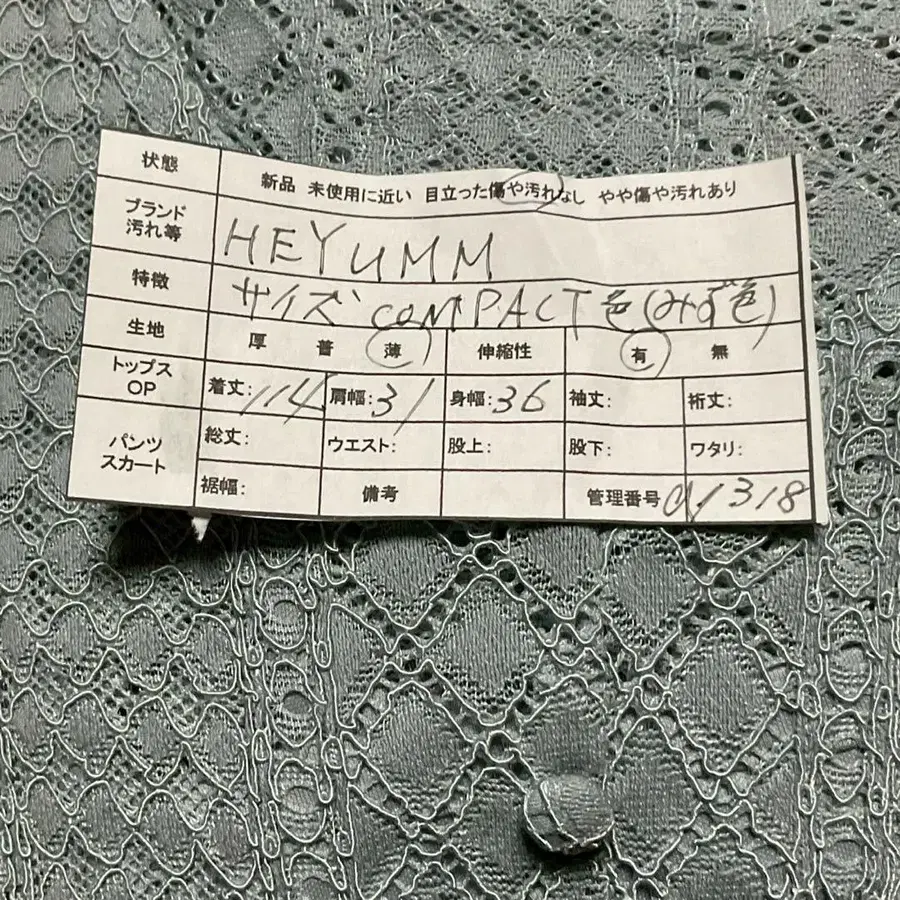 状態 新品 未使用に近い 目立った傷や汚れなし やや傷や汚れあり
ブランド
汚れ等 HEYUMM
特徴 サイズ COMPACT 色(みず色)
生地 厚 普 薄 伸縮性 有 無
トップス
OP 着丈:114 肩幅:31 身幅:36 袖丈: 裄丈:
パンツ
スカート 総丈: ウエスト: 股上: 股下: ワタリ:
裾幅: 備考 管理番号 d1318